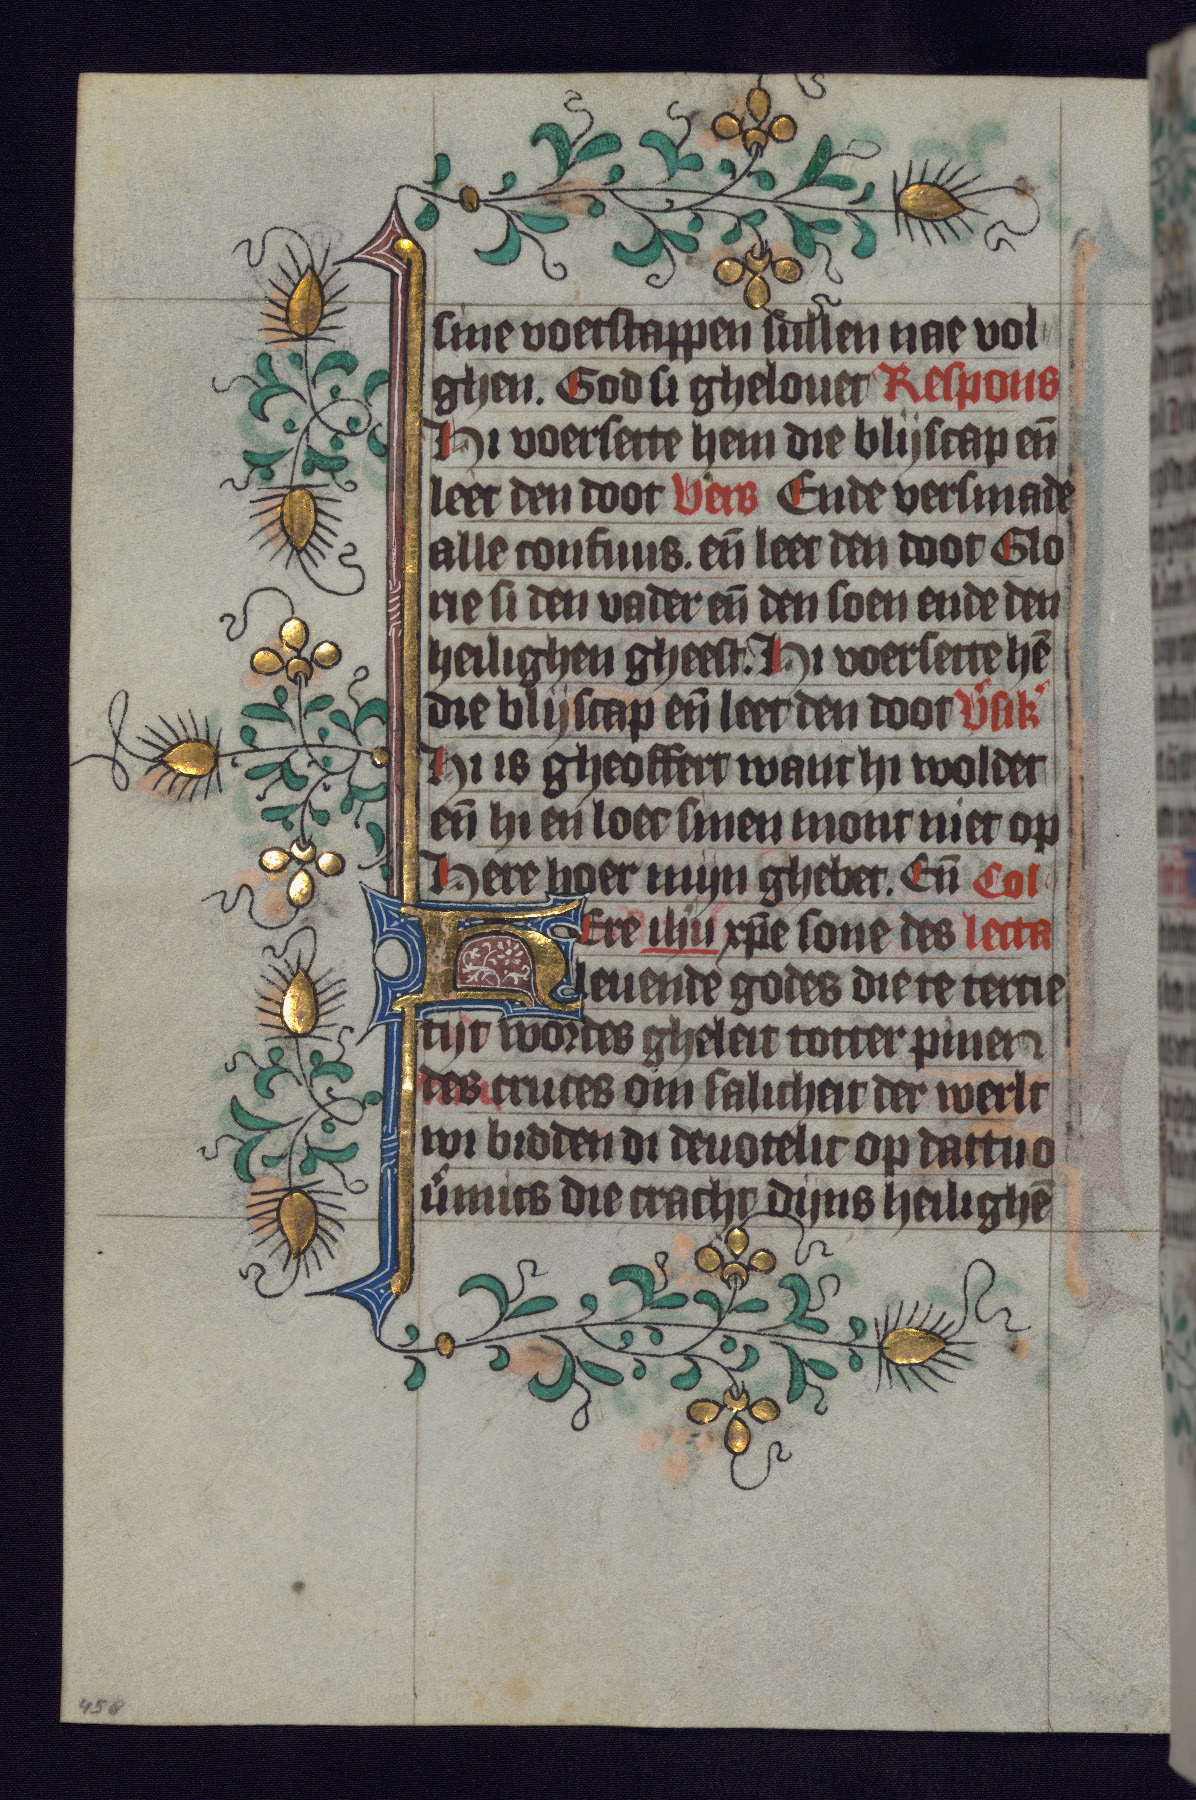 sine voetstappen sullen nae vol
ghen. God si ghelouet Respons
Hi voersette hem die blijscap eñ
leet den doot Vers Ende versmade
alle confuus. eñ leet den doot Glo
rie si den vader eñ den soen ende den
heilighen gheest. Hi voersette hē
die blijscap eñ leet den doot
Hi is gheoffert want hi woldet
eñ hi en loec sinen mont niet op
Here hoer mijn ghebet. Eñ Col
HEre ihū xp̄e sone des lecta
leuende godes die te tercie
tijt wordes gheleit totter pinen
des cruces om salicheit der werlt
wi bidden di deuotelic op dattu o
ū mits die cracht dijns heilighē
458